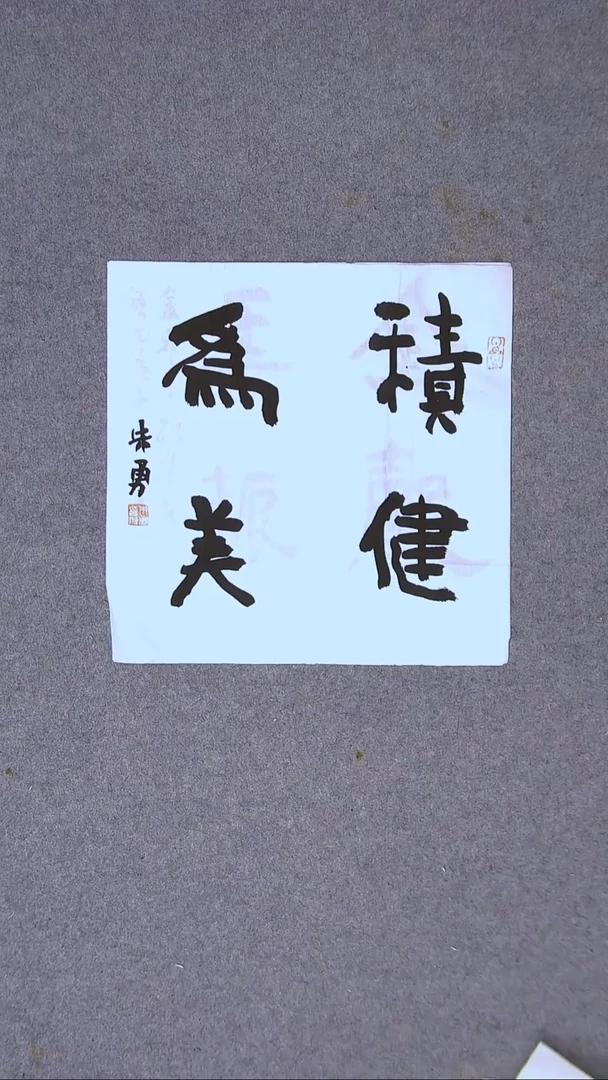 積健
為美
朱勇